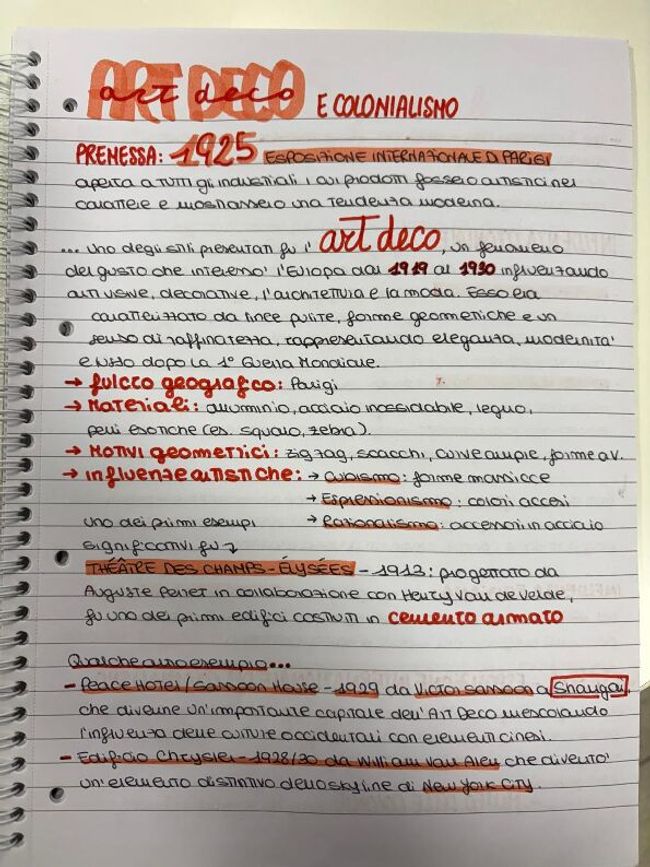 ART DECO
art deco E COLONIALISMO
PREMESSA: 1925 ESPOSIZIONE INTERNAZIONALE DI PARIGI
aperta a tutti gli industriali i cui prodotti fossero artistici nel
carattere e mostrassero una tendenza moderna.
... uno degli stili presentati fu l' art deco, un fenomeno
del gusto che interessò l'Europa dal 1919 al 1930 influenzando
arti visive, decorative, l'architettura e la moda. Esso era
caratterizzato da linee pulite, forme geometriche e un
senso di raffinatezza, rappresentando eleganza, modernità
e lusso dopo la 1° Guerra Mondiale.
→ fulcro geografico: Parigi
→ Materiali: alluminio, acciaio inossidabile, legno,
pelli esotiche (es. squalo, zebra).
→ Motivi geometrici: zig zag, scacchi, curve ampie, forme a V.
→ influenze artistiche: → Cubismo: forme massicce
→ Espressionismo: colori accesi
uno dei primi esempi → Razionalismo: accessori in acciaio
significativi fu ↴
THÉÂTRE DES CHAMPS-ÉLYSÉES - 1913: progettato da
Auguste Perret in collaborazione con Henry Van de Velde,
fu uno dei primi edifici costruiti in cemento armato
Qualche altro esempio...
- Peace Hotel / Sassoon House - 1929 da Victor Sassoon a Shangai,
che divenne un'importante capitale dell'Art Deco mescolando
l'influenza delle culture occidentali con elementi cinesi.
- Edificio Chrysler - 1928/30 da William Van Alen che diventò
un'elemento distintivo dello skyline di New York City.